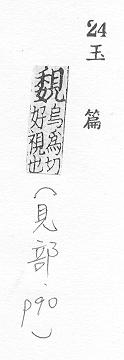 24
玉篇
覣
烏為切
好視也
(見部.p90)